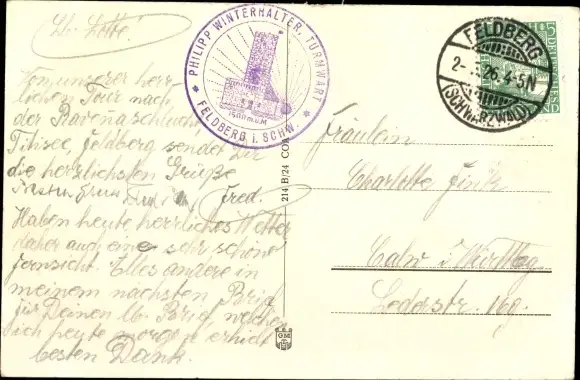 Lb. Lotte!
Von unserer herr-
lichen Tour nach
der Ravennaschlucht
Titisee, Feldberg sendet Dir
die herzlichsten Grüße
Fred.
Haben heute herrliches Wetter
daher auch eine sehr schöne
Fernsicht. Alles andere in
meinem nächsten Brief
für Deinen lb. Brief welchen
ich heute morgen erhielt
besten Dank.
PHILIPP WINTERHALTER, TURMWART
1500 m.ü.M
* FELDBERG i. SCHW. *
FELDBERG
26.4-5N
(SCHWARZWALD)
5
214 B/24
GM
Fräulein
Charlotte
Calw i/Württbg
Lederstr. 169.